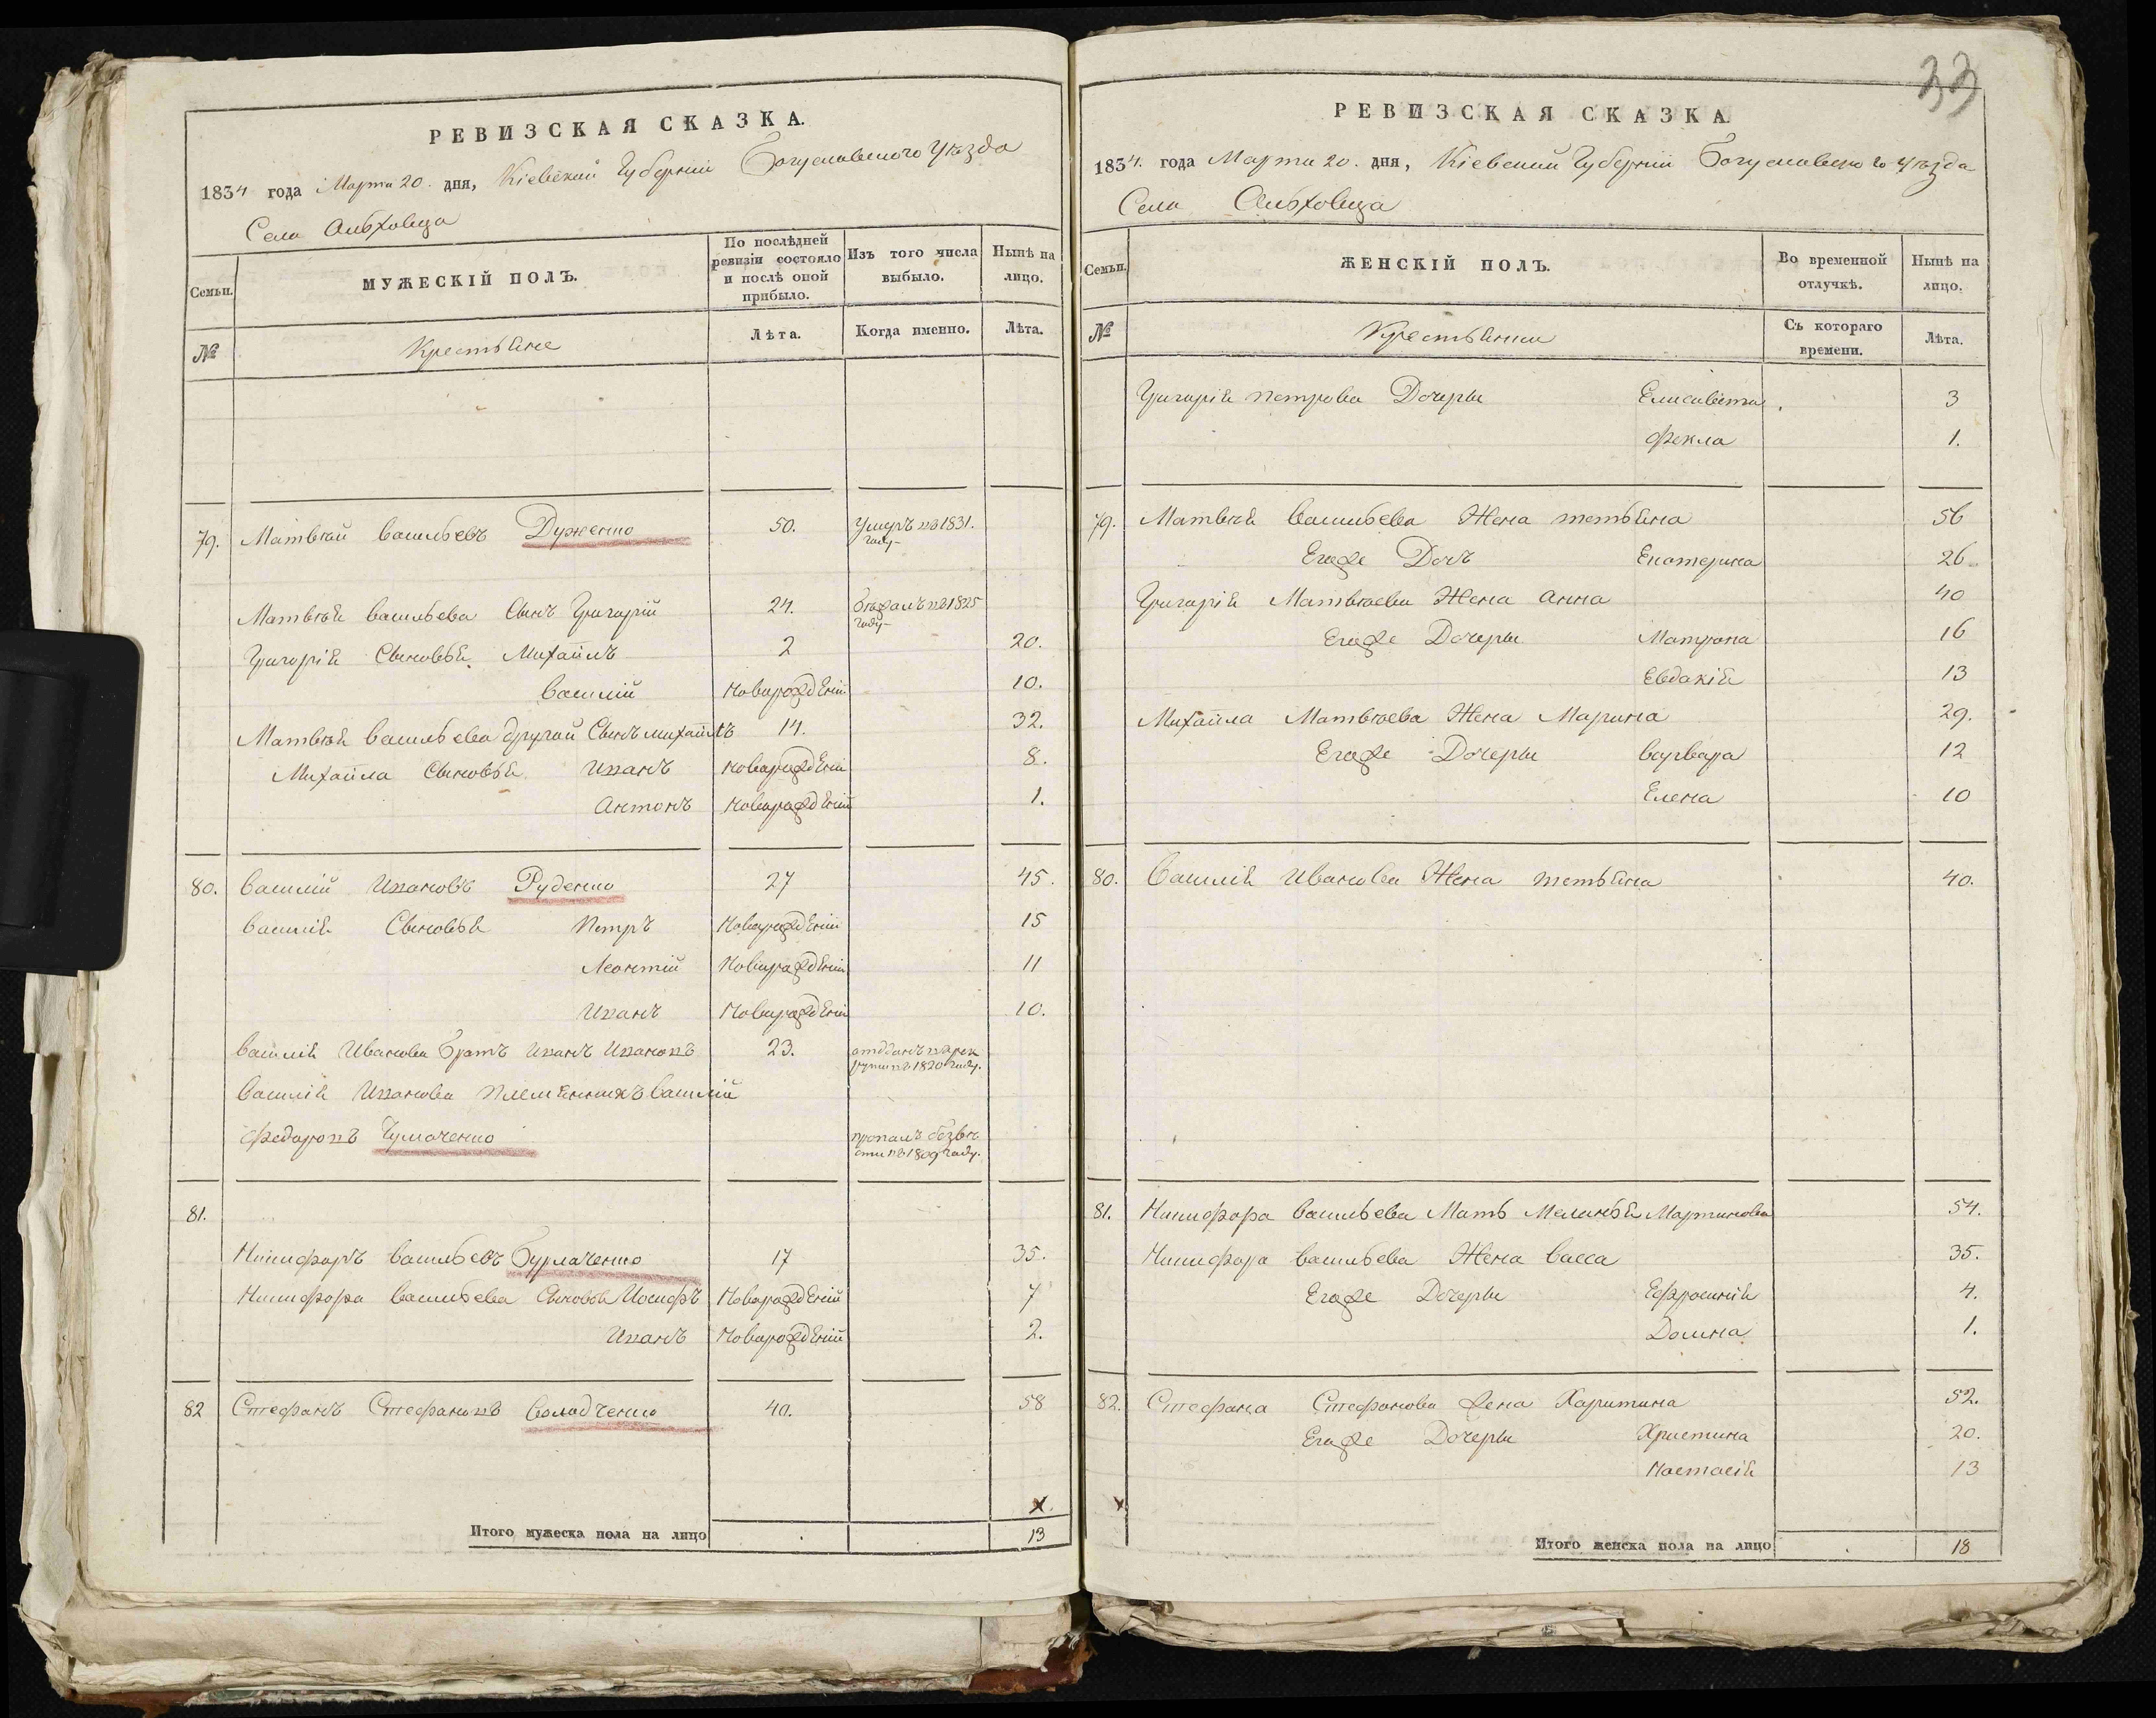 РЕВИЗСКАЯ СКАЗКА.
1834 года Марта 20. дня, Кіевской Губерніи Богуславского Уѣзда
Села Ольховца
Семьи.
МУЖЕСКІЙ ПОЛЪ.
По послѣдней ревизіи состояло и послѣ оной прибыло.
Изъ того числа выбыло.
Нынѣ на лицо.
№
Крестьяне
Лѣта.
Когда именно.
Лѣта.
79. Матвѣй Васильевъ Дуженко 50. Умеръ въ 1831. году
Матвѣя Васильева Сынъ Григорій 24. бѣжалъ въ 1825 году
Григорія Сыновья Михайлъ 2 20.
Василій Новорожденій 10.
Матвѣя Васильева другой Сынъ Михайлъ 14. 32.
Михайла Сыновья Иванъ новорожденій 8.
Антонъ Новорожденій 1.
80. Василій Ивановъ Руденко 27 45.
Василія Сыновья Петръ Новорожденій 15
Леонтій Новорожденій 11
Иванъ Новорожденій 10.
Василія Иванова братъ Иванъ Ивановъ 23. отданъ въ рек
руты въ 1820 году.
Василія Иванова племянникъ Василій
Федоровъ Чумаченко пропалъ безвѣ
сти въ 1809 году.
81.
Никифоръ Васильевъ Бурлаченко 17 35.
Никифора Васильева Сыновья Иосифъ Новорожденій 7
Иванъ Новорожденій 2.
82 Стефанъ Стефановъ Володченко 40. 58
х.
Итого мужеска пола на лицо 13
33
РЕВИЗСКАЯ СКАЗКА
1834. года Марта 20. дня, Кіевской Губерніи Богуславского Уѣзда
Села Ольховца
Семьи.
ЖЕНСКІЙ ПОЛЪ.
Во временной отлучкѣ.
Нынѣ на лицо.
№
Крестьянки
Съ котораго времени.
Лѣта.
Григорія Петрова Дочеры Елисавета 3
Фекла 1.
79. Матвѣя Васильева Жена Тетьяна 56
Егоже Дочъ Екатерина 26
Григорія Матвѣева Жена Анна 40
Егоже Дочеры Матрона 16
Евдакія 13
Михайла Матвѣева Жена Марина 29.
Егоже Дочеры Варвара 12
Елена 10
80. Василія Иванова Жена Тетьяна 40.
81. Никифора Васильева Мать Меланья Мартинова 54.
Никифора Васильева Жена Васса 35.
Егоже Дочеры Ефросинія 4.
Домна 1.
82. Стефана Стефанова жена Харитина 52.
Егоже Дочеры Христина 20.
Настасія 13
х
Итого женска пола на лицо 18